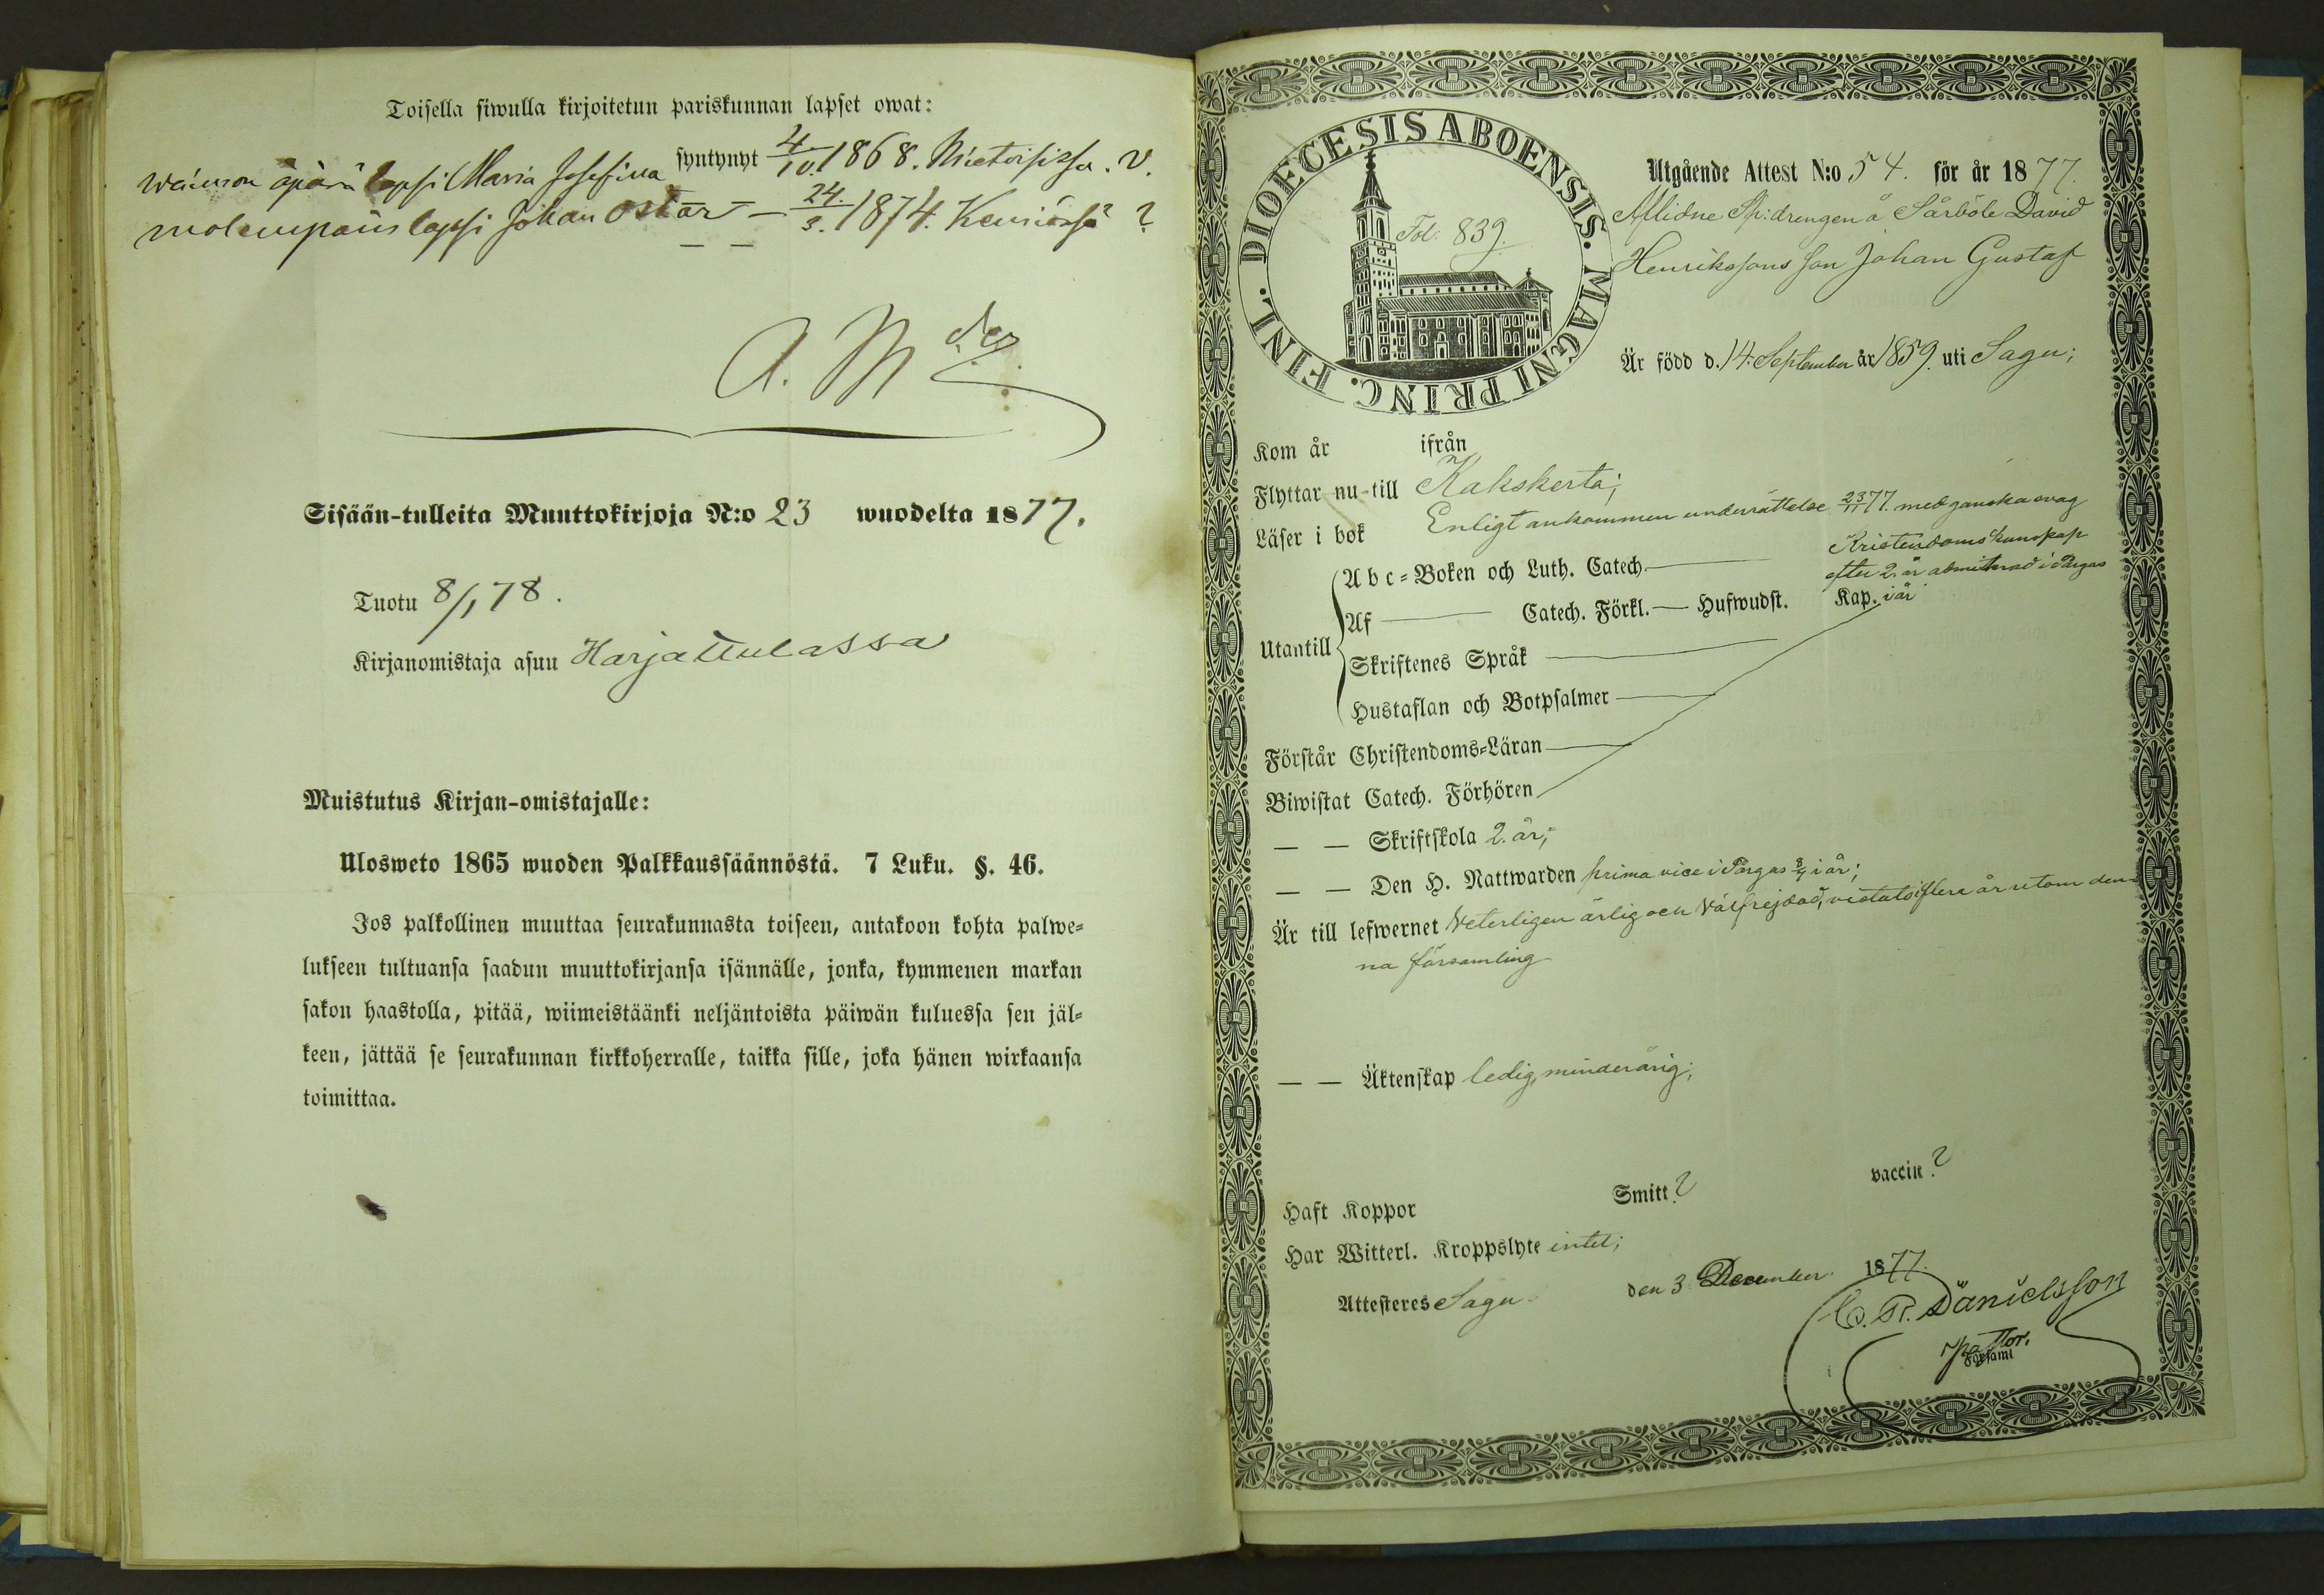 Toisella siwulla kirjoitetun pariskunnan lapset owat:
waimon äpärä lapsi Maria Josefina syntynyt 4/10. 1868. Mietoisissa. V.
molempain lapsi Johan Oskar — 24./3. 1874. Kemiössä ?
A. M
Sisään-tulleita Muuttokirjoja N:o 23 wuodelta 1877.
Tuotu 8/1 78.
Kirjanomistaja asuu Harjattulassa
Muistutus Kirjan-omistajalle:
Ulosweto 1865 wuoden Palkkaussäännöstä. 7 Luku. §. 46.
Jos palkollinen muuttaa seurakunnasta toiseen, antakoon kohta palwe-
lukseen tultuansa saadun muuttokirjansa isännälle, jonka, kymmenen markan
sakon haastolla, pitää, wiimeistäänki neljäntoista päiwän kuluessa sen jäl-
keen, jättää se seurakunnan kirkkoherralle, taikka sille, joka hänen wirkaansa
toimittaa.
DIOECESIS ABOENSIS. MAGNI PRINC. FINL.
Fol. 839.
Utgående Attest N:o 54. för år 1877.
Aflidne Sp:drengen å Sårböle David
Henrikssons son Johan Gustaf
Är född d. 14. September år 1859. uti Sagu;
Kom år ifrån
Flyttar nu till Kakskerta;
Läser i bok Enligt ankommen underrättelse 23/11 77. med ganska svag
Kristendoms kunskap
efter 2 år admitterad i Pargas
i år
Utantill
Abc-Boken och Luth. Catech.
Af — Catech. Förkl. — Hufwudst. Kap.
Skriftenes Språk
Hustaflan och Botpsalmer
Förstår Christendoms-Läran
Biwistat Catech. Förhören
— — Skriftskola 2. år;
— — Den H. Nattwarden prima vice i Pargas i år;
Är till lefwernet veterligen ärlig och välfrejdad, vistats flere år utom den-
na församling
— — Äktenskap ledig, minderårig;
Haft Koppor Smitt ? vaccin ?
Har Witterl. Kroppslyte intet;
Attesteres Sagu den 3 December 1877.
C. R. Danielsson
pastor.
Församl